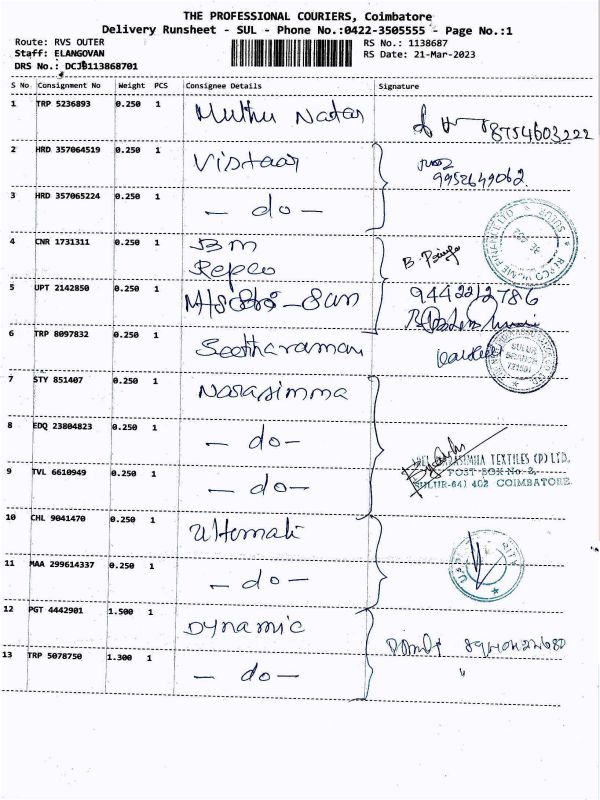 THE PROFESSIONAL COURIERS, Coimbatore
Delivery Runsheet - SUL - Phone No.:0422-3505555 - Page No.:1
Route: RVS OUTER
RS No.: 1138687
Staff: ELANGOVAN
RS Date: 21-Mar-2023
DRS No.: DCJB113868701
S No Consignment No Weight PCS Consignee Details Signature
1 TRP 5236893 0.250 1 Muthu Nadar 8754603222
2 HRD 357064519 0.250 1 Vistaar
9952649062
3 HRD 357065224 0.250 1 - do -
4 CNR 1731311 0.250 1 BM
Repco
5 UPT 2142850 0.250 1 Sun 9442212786
6 TRP 8097832 0.250 1 Seetharaman
SULUR
BRANCH
7 STY 851407 0.250 1 Narasimma
8 EDQ 23804823 0.250 1 - do -
NARASIMHA TEXTILES (P) LTD.
POST BOX No. 2,
9 TVL 6610949 0.250 1 - do - SULUR-641 402 COIMBATORE
10 CHL 9041470 0.250 1 Ultemati
11 MAA 299614337 0.250 1 - do -
12 PGT 4442901 1.500 1 Dynamic
13 TRP 5078750 1.300 1 - do - "